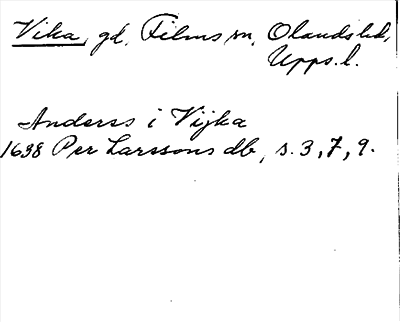 Vika, gd, Films sn, Olands hd,
Upps. l.
Anderss i Vijka
1638 Per Larssons db, s. 3, 7, 9.